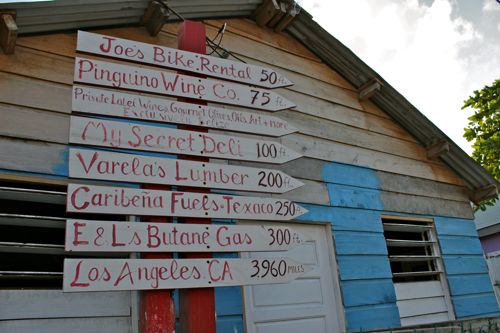 Joe's Bike Rental 50 ft.
Pinguino Wine Co. 75 ft.
Private Label Wines, Gourmet Olives, Oils, Art + more
Exclusive in Belize
My Secret Deli 100 ft.
Varela's Lumber 200 ft.
Caribeña Fuels-Texaco 250 ft.
E & L's Butane Gas 300 ft.
Los Angeles, CA 3960 miles